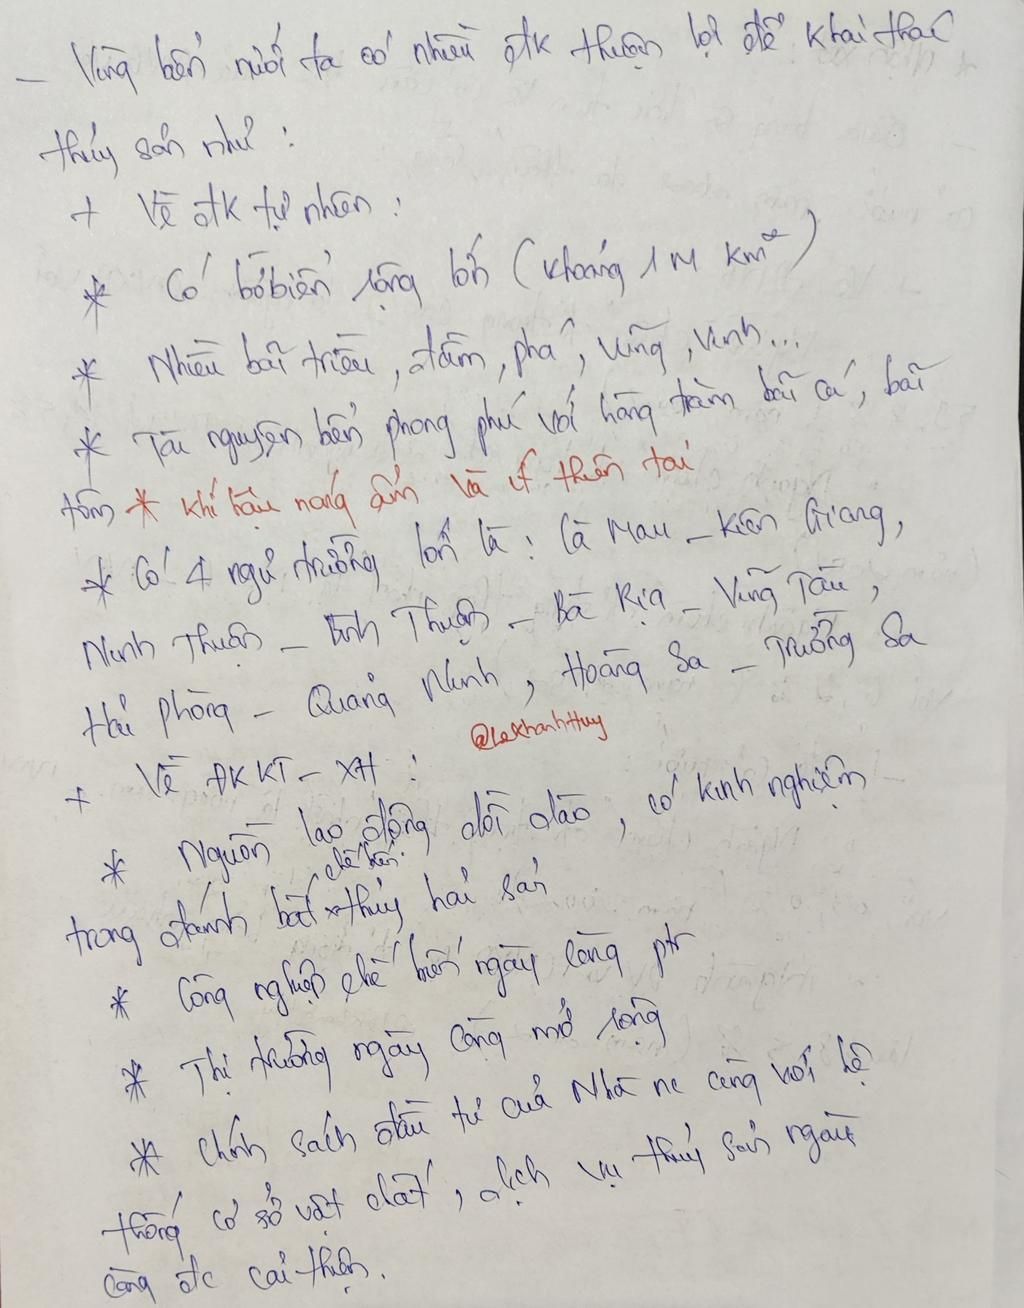 - Vùng biển nước ta có nhiều đk thuận lợi để khai thác
thủy sản như :
+ Về đk tự nhiên :
* Có bờ biển rộng lớn (khoảng 1M km²)
* Nhiều bãi triều, đầm, phá, vũng, vịnh...
* Tài nguyên biển phong phú với hàng trăm bãi cá, bãi
tôm * khí hậu nóng ẩm và ít thiên tai
* Có 4 ngư trường lớn là : Cà Mau - Kiên Giang,
Ninh Thuận - Bình Thuận - Bà Rịa - Vũng Tàu,
Hải phòng - Quảng Ninh, Hoàng Sa - Trường Sa
@LeKhanhHuy
+ Về ĐK KT - XH :
* Nguồn lao động dồi dào, có kinh nghiệm
chế biến
trong đánh bắt thủy hải sản
* Công nghiệp chế biến ngày càng ptr
* Thị trường ngày càng mở rộng
* Chính sách đầu tư của Nhà nc cùng với hệ
thống cơ sở vật chất, dịch vụ thủy sản ngày
càng đc cải thiện.